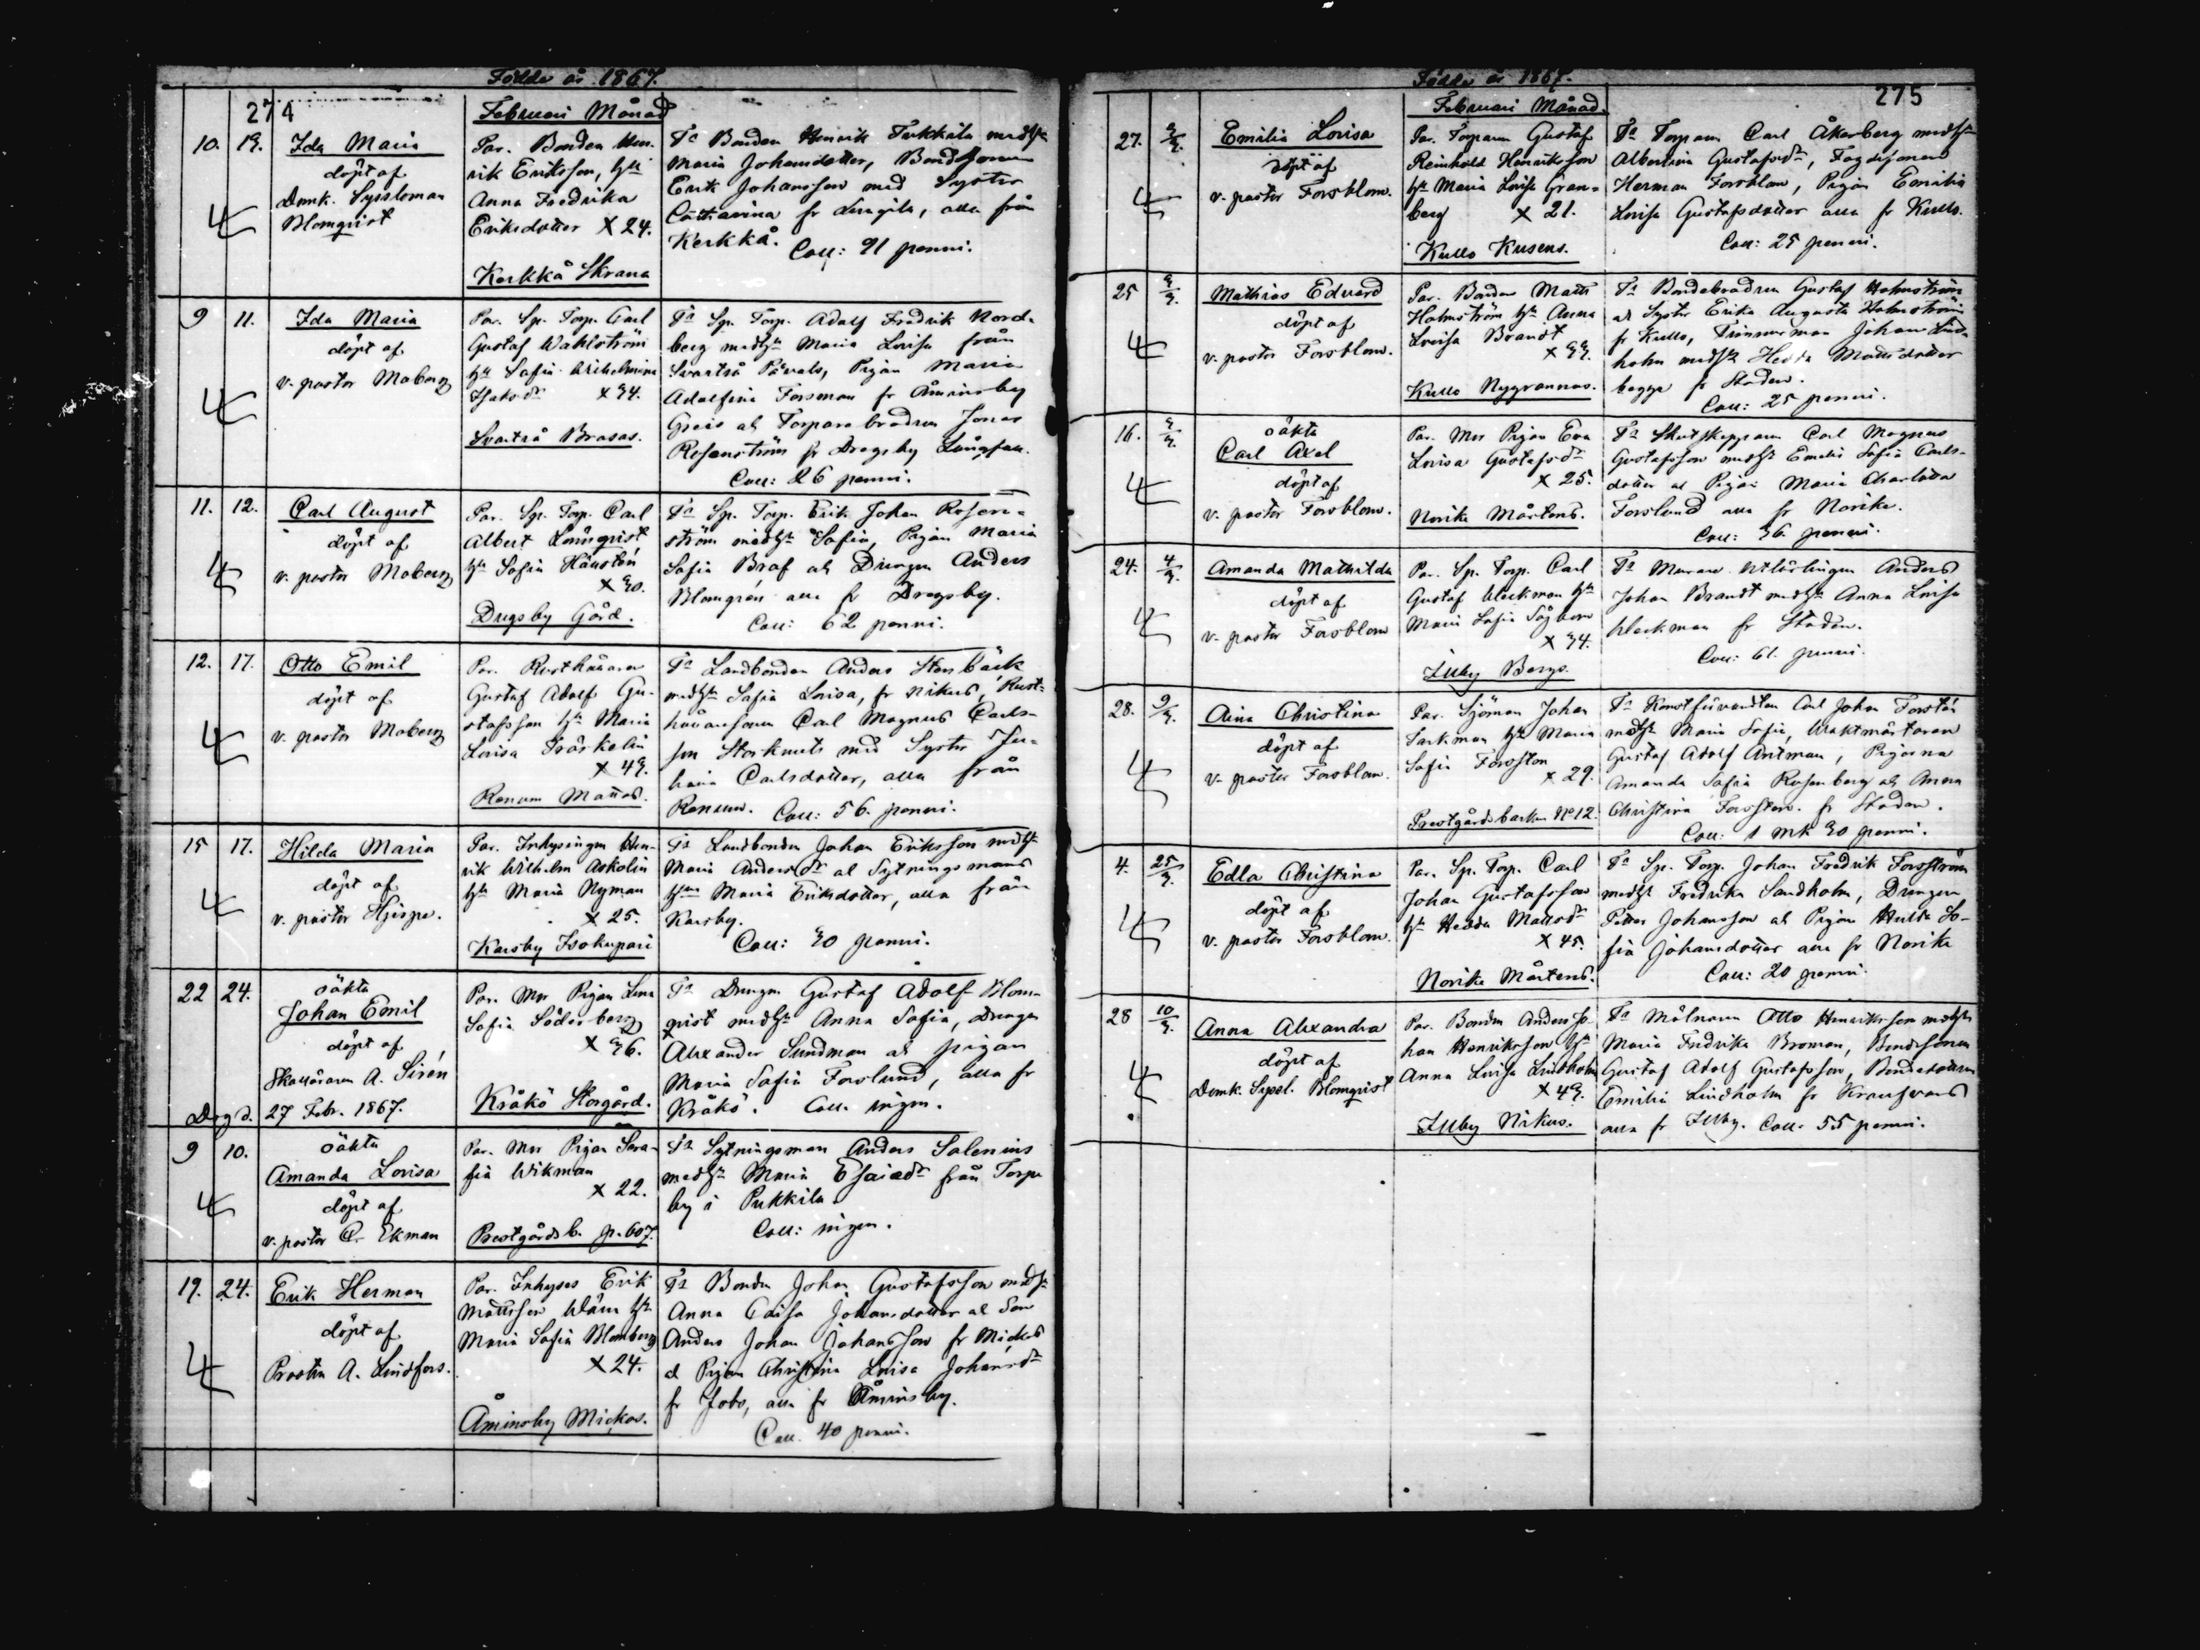 Födde år 1867.
274
Februari Månad
10. 13. Ida Maria
döpt af
Domk. Syssloman
Blomqvist
Par. Bonden Hen-
rik Eriksson, hu
Anna Fredrika
Eriksdotter X 24.
Kerkkå Skrana
Fr Bonden Henrik Tukkila medhu
Maria Johansdotter, Bondsonen
Erik Johansson med Syster
Catharina fr Lengila, alla från
Kerkkå.
Coll: 91 penni.
9 11. Ida Maria
döpt af
v. pastor Moberg
Par. Sp. Torp. Carl
Gustaf Wahlström
hu Sofia Wilhelmina
Isaksdr X 34.
Svartså Brasas.
Fr Sp. Torp. Adolf Fredrik Nord-
berg medhu Maria Lovisa från
Svartså Påvals, Pigan Maria
Adolfina Forsman fr Åminsby
Greis et Torparebrodren Jonas
Rosenström fr Dregsby
Coll: 26 penni.
11. 12. Carl August
döpt af
v. pastor Moberg
Par. Sp. Torp. Carl
Albert Lönnqvist
hu Sofia
X 30.
Dregsby Gård.
Fr Sp. Torp. Erik Johan Rosen-
ström medhu Sofia, Pigan Maria
Sofia Braf et Drengen Anders
Blomgrén alla fr Dregsby.
Coll: 62 penni.
12. 17. Otto Emil
döpt af
v. pastor Moberg
Par. Rusthållaren
Gustaf Adolf Gu-
stafsson hu Maria
Lovisa
X 43.
Renum Mattas.
Fr Landbonden Anders Stenbäck
medhu Sofia Lovisa, fr Nikus, Rust-
hållaresonen Carl Magnus Carls-
son Storknuts med Syster Jo-
hana Carlsdotter, alla från
Renum. Coll: 56 penni.
15 17. Hilda Maria
döpt af
v. pastor Hjispe.
Par. Inhysingen Hen-
rik Wilhelm Askolin
hu Maria Nyman
X 25.
Karsby Isokupari
Fr Landbonden Johan Eriksson medhu
Maria Andersdr et Sytningsmans
hun Maria Eriksdotter, alla från
Karsby.
Coll: 30 penni.
22 24. oäkta
Johan Emil
döpt af
Skollärarn A. Sirén
Dog d. 27 Febr. 1867.
Par. Mor Pigan Lena
Sofia Söderberg
X 36.
Kråkö Storgård.
Fr Drengen Gustaf Adolf Blom-
qvist medhu Anna Sofia, Drengen
Alexander Sundman et pigan
Maria Sofia Forslund, alla fr
Kråkö. Coll. ingen.
9 10. oäkta
Amanda Lovisa
döpt af
v. pastor C. Ekman
Par. Mor Pigan Sera-
fia Wikman
X 22.
Prestgårds b. p. 607.
Fr Sytningsman Anders Salenius
medhu Maria Esaiedr från Torp-
by i Pukkila
Coll: ingen.
19. 24. Erik Herman
döpt af
Prosten A. Lindfors.
Par. Inhyses Erik
Mattsson hu
Maria Sofia Blomberg
X 24.
Åminsby Mickos.
Fr Bonden Johan Gustafsson medhu
Anna Caisa Johansdotter et Son
Anders Johan Johansson fr Mickos
et Pigan Christina Lovisa Johansdr
fr Jobs, alla fr Åminsby.
Coll. 40 penni.
Födde år 1867.
275
Februari Månad.
27. 3/3. Emilia Lovisa
döpt af
v. pastor Forsblom.
Par. Torparen Gustaf
Reinhold Henriksson
hu Maria Lovisa Gran-
berg X 21.
Kullo Kusens.
Fr Torparen Carl Åkerberg medhu
Albertina Gustafsdr, Fogdesonen
Herman Forsblom, Pigan Emilia
Lovisa Gustafsdotter alla fr Kullo.
Coll: 25 penni.
25 3/3. Mathias Edvard
döpt af
v. pastor Forsblom.
Par. Bonden Matts
Holmström hu Anna
Lovisa Brandt
X 33.
Kullo Nygrannas.
Fr Bondebrodren Gustaf Holmström
et Syster Erika Augusta Holmström
fr Kullo, Timmerman Johan Lind-
holm medhu Hedda Mattsdotter
begge fr Staden.
Coll: 25 penni.
16. 3/3. oäkta
Carl Axel
döpt af
v. pastor Forsblom.
Par. Mor Pigan Eva
Lovisa Gustafsdr
X 25.
Norike Mårtens.
Fr Skutskepparen Carl Magnus
Gustafsson medhu Emelie Sofia Carls-
dotter et Pigan Maria Charlotta
Forslund alla fr Norike.
Coll: 36 penni.
24. 4/3. Amanda Mathilda
döpt af
v. pastor Forsblom
Par. Sp. Torp. Carl
Gustaf Weckman hu
Maria Sofia Sågbom
X 34.
Illby Bergs.
Fr Murare utlärlingen Anders
Johan Brandt medhu Anna Lovisa
Weckman fr Staden.
Coll: 61. penni.
28. 9/3. Aina Christina
döpt af
v. pastor Forsblom.
Par. Sjöman Johan
Sarkman hu Maria
Sofia Forsston
X 29.
Prestgårdsbacken No 12.
Fr Konstförvandten Carl Johan Forstén
medhu Maria Sofia, Waktmästaren
Gustaf Adolf Antman, Pigorna
Amanda Sofia Rosenberg et Anna
Christina Forssten. fr Staden.
Coll: 1 mk 30 penni.
4. 25/3. Edla Christina
döpt af
v. pastor Forsblom.
Par. Sp. Torp. Carl
Johan Gustafsson
hu Hedda Mattsdr
X 45.
Norike Mårtens.
Fr Sp. Torp. Johan Fredrik Forsström
medhu Fredrika Sandholm, Drengen
Petter Johansson et Pigan Hulda So-
fia Johansdotter alla fr Norike
Coll: 20 penni.
28 10/3. Anna Alexandra
döpt af
Domk. Syssl. Blomqvist
Par. Bonden Anders Jo-
han Henriksson hu
Anna Lovisa Lindholm
X 43.
Illby Nikus.
Fr Målaren Otto Henriksson medhu
Maria Fredrika Broman, Bondsonen
Gustaf Adolf Gustafsson, Bondedottren
Emilia Lindholm fr
alla fr Illby. Coll. 55 penni.